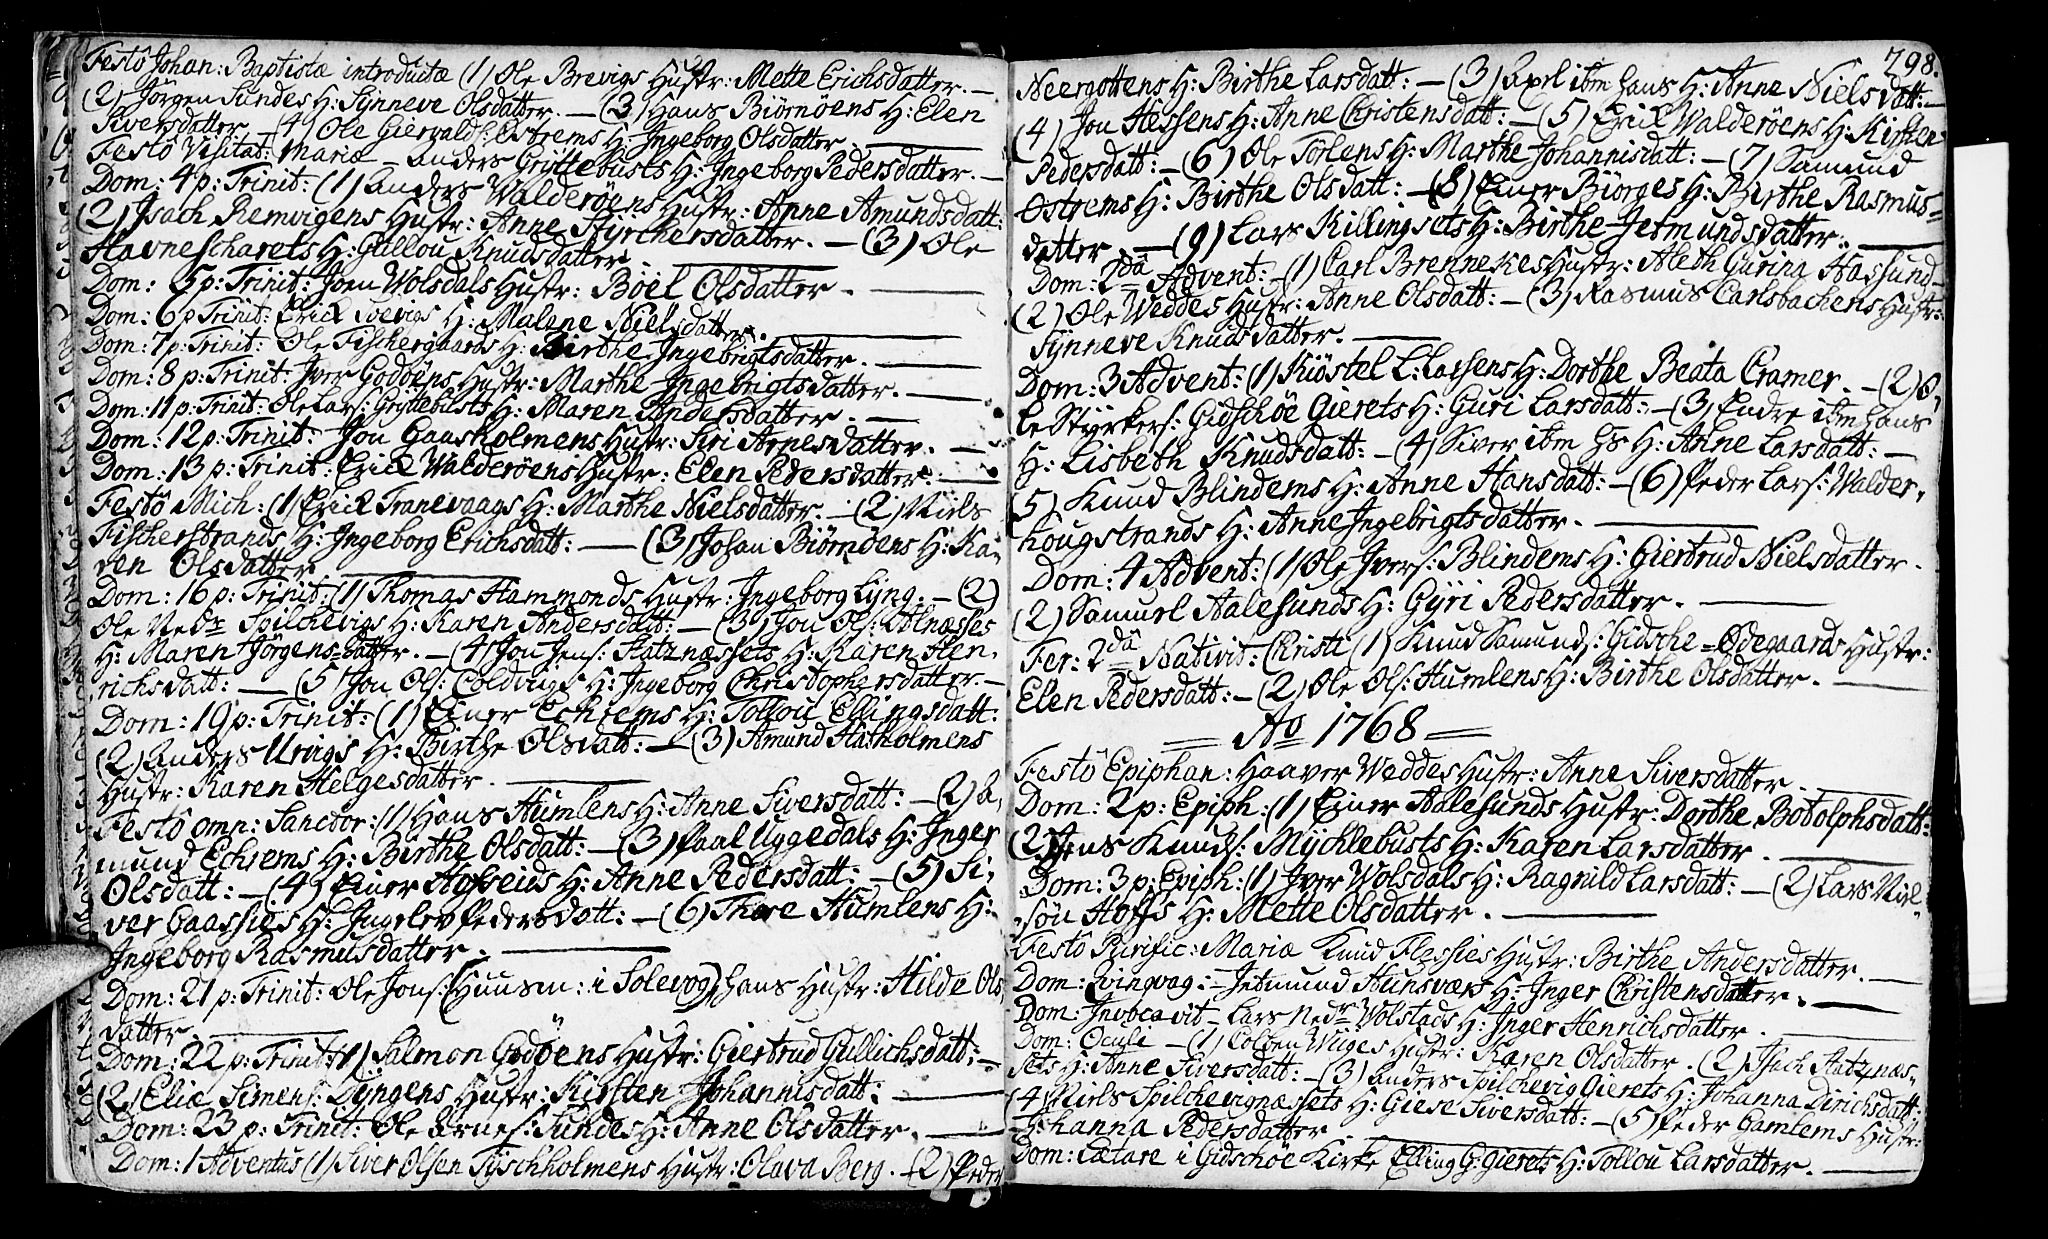 Festô Johan: Baptistæ introductæ (1) Ole Brevigs Hustr: Mette Erichsdatter. —
(2) Jörgen Sundes H: Synneve Olsdatter. — (3) Hans Biörnöens H: Elen
Siversdatter — (4) Ole Giervalds H: Ingeborg Olsdatter. —
Festô Visitat: Mariæ — Anders Gryttebusts H: Ingeborg Pedersdatter. —
Dom: 4 p: Trinit: (1) Anders Walderöens Hustr: Anne Amundsdatt:
(2) Isach Remvigens Hustr: Anne Styrchersdatter. — (3) Ole
Havnescharets H: Gullou Knudsdatter. —
Dom: 5 p: Trinit: Joen Wolsdals Hustr: Boel Olsdatter. —
Dom: 6 p Trinit: Erick H: Malene Nielsdatter. —
Dom: 7 p: Trinit: Ole Fischergaards H: Birthe Ingebrigtsdatter. —
Dom: 8 p: Trinit: Iver Godöens Hustr: Marthe Ingebrigtsdatter. —
Dom: 11 p: Trinit: Ole Lars: Gryttebusts H: Maren Andersdatter. —
Dom: 12 p: Trinit: Jon Gaasholmens Hustr: Siri Arnesdatter. —
Dom: 13 p: Trinit: Erick Walderöens Hustr: Elen Pedersdatter. —
Festô Mich: (1) Erick Tranevaags H: Marthe Nielsdatter. — (2) Niels
Fischerstrands H: Ingeborg Erichsdatt: — (3) Johan Biörnöens H: Ka-
ren Olsdatter —
Dom: 16 p: Trinit: (1) Thomas Hammonds Hustr: Ingeborg Lyng. — (2)
Ole Nedr Spilchevigs H: Karen Andersdatt: — (3) Jon Ols: Alnæsses
H: Maren Jörgensdatter. — (4) Jon Jens: Slatznæssets H: Karen Hen-
richsdatt: — (5) Jon Ols: Coldvings H: Ingeborg Christophersdatter —
Dom: 19 p: Trinit: (1) Einer Echrems H: Tollou Ellingsdatt:
(2) Anders Urvigs H: Birthe Olsdatt: — (3) Amund Hatholmens
Hustr: Karen Helgesdatter. —
Festô omn: Sanctor: (1) Hans Humlens H: Anne Siversdatt: — (2) A-
mund Echrems H: Birthe Olsdatt: — (3) Paal Uggedals H: Inger
Olsdatt: — (4) Einer H: Anne Pedersdatt: — (5) Si-
ver H: Ingelev Pedersdatt: — (6) Thore Humlens H:
Ingeborg Rasmusdatter. —
Dom: 21 p: Trinit: Ole Jons: (Huusm: i Solevog) hans Hustr: Hilde Ols
datter —
Dom: 22 p: Trinit: (1) Salmon Godöens Hustr: Giertrud Gullichsdatt: —
(2) Eliæ Simens: Dyngens Hustr: Kirsten Johannisdatt: —
Dom: 23 p: Trinit: Ole Arnes: Sundes H: Anne Olsdatter. —
Dom: 1 Adventus (1) Siver Olsen Tyschholmens Hustr: Olava Berg. — (2) Peder
798.
Neergottens H: Birthe Larsdatt: — (3) Axel ibm hans H: Anne Nielsdatt: —
(4) Jon Hessens H: Anne Christensdatt: — (5) Erick Walderöens H: Kirsten
Pedersdatt: — (6) Ole H: Marthe Johannisdatt: — (7) Samund
Ostrems H: Birthe Olsdatt: — (8) Einer Biörges H: Birthe Rasmus-
datter. — (9) Lars Killingsets H: Birthe Jetmundsdatter. —
Dom: 2da Advent: (1) Carl Brennekes Hustr: Aleth Gurina Hassund —
(2) Ole Weddes Hustr: Anne Olsdatt: — (3) Rasmus Carlsbachens Hustr:
Synneve Knudsdatter. —
Dom: 3 Advent: (1) Kiöstel L: Lassens H: Dorthe Beata Cramer. — (2) O-
le Styrkers: Gidschöe Gierets H: Guri Larsdatt: — (3) Endre ibm hans
H: Lisbeth Knudsdatt: — (4) Siver ibm hs H: Anne Larsdatt: —
(5) Knud Blindems H: Anne Hansdatt: — (6) Peder Lars: Walder-
hougstrands H: Anne Ingebrigtsdatter. —
Dom: 4 Advent: (1) Ole Ivers: Blindems H: Giertrud Nielsdatter.
(2) Samuel Aalesunds H: Gyri Pedersdatter. —
Fer: 2da Nativit: Christi (1) Knud Samunds: Gidsche = Ödegaards Hustr:
Elen Pedersdatt: — (2) Ole Ols: Humlens H: Birthe Olsdatter. —
= Ao 1768 =
Festô Epiphan: Haaver Weddes Hustr: Anne Siversdatter —
Dom: 2 p: Epiph: (1) Einer Aalesunds Hustr: Dorthe Botolphsdatt:
(2) Jens Knuds: Mychlebusts H: Karen Larsdatter. —
Dom: 3 p: Epiph: (1) Iver Wolsdals H: Ragnild Larsdatt: — (2) Lars Niel-
sön Hoffs H: Mette Olsdatter. —
Festô Purific: Mariæ Knud Flessies Hustr: Birthe Andersdatter. —
Dom: Qvinqvag: — Jetmund Hunsværs H: Inger Christensdatter. —
Dom: Invocavit — Lars Nedr Wolstads H: Inger Henrichsdatter. —
Dom: Oculi — (1) Colben Wiiges Hustr: Karen Olsdatter. (2) Isach Slatznæs-
sets H: Anne Siversdatt: — (3) Anders Spilchevig Gierets H: Johanna Dirichsdatt:
(4) Niels Spilchevignæssets H: Giese Siversdatt: — (5) Peder Gamlems Hustr:
Johanna Pedersdatter —
Dom: Lætare i Gidschöe Kirke Elling G: Gierets H: Tollou Larsdatter. —